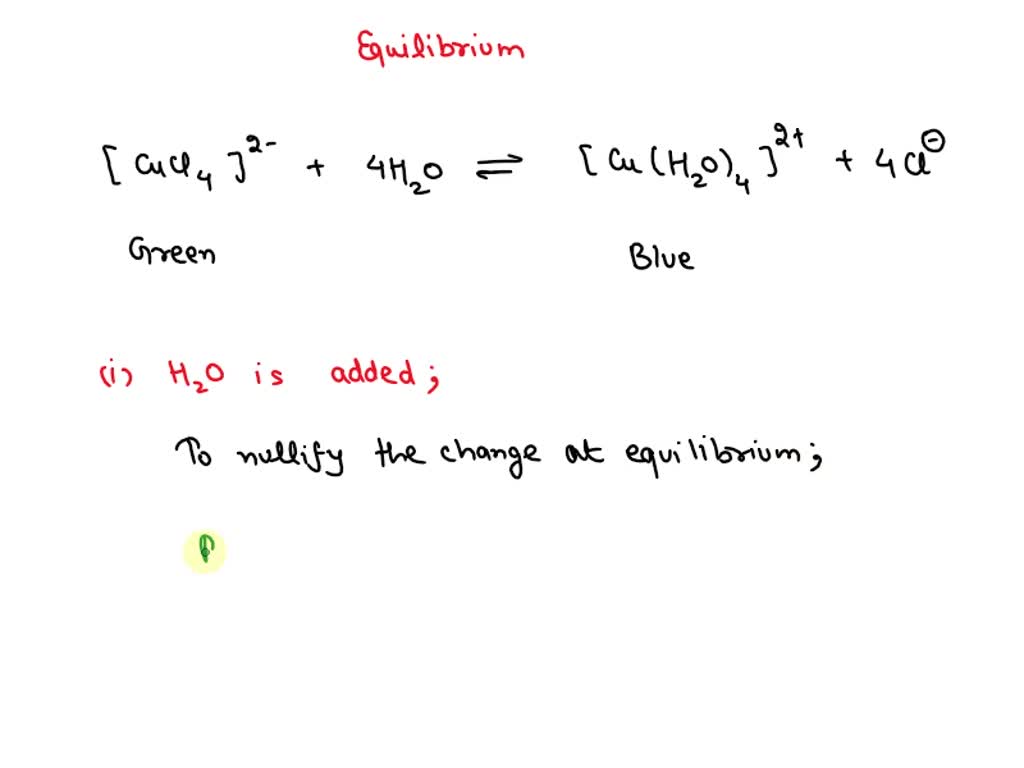 Equilibrium
[CuCl₄]²⁻ + 4H₂O ⇌ [Cu(H₂O)₄]²⁺ + 4Cl⊖
Green Blue
(i) H₂O is added;
To nullify the change at equilibrium;
P